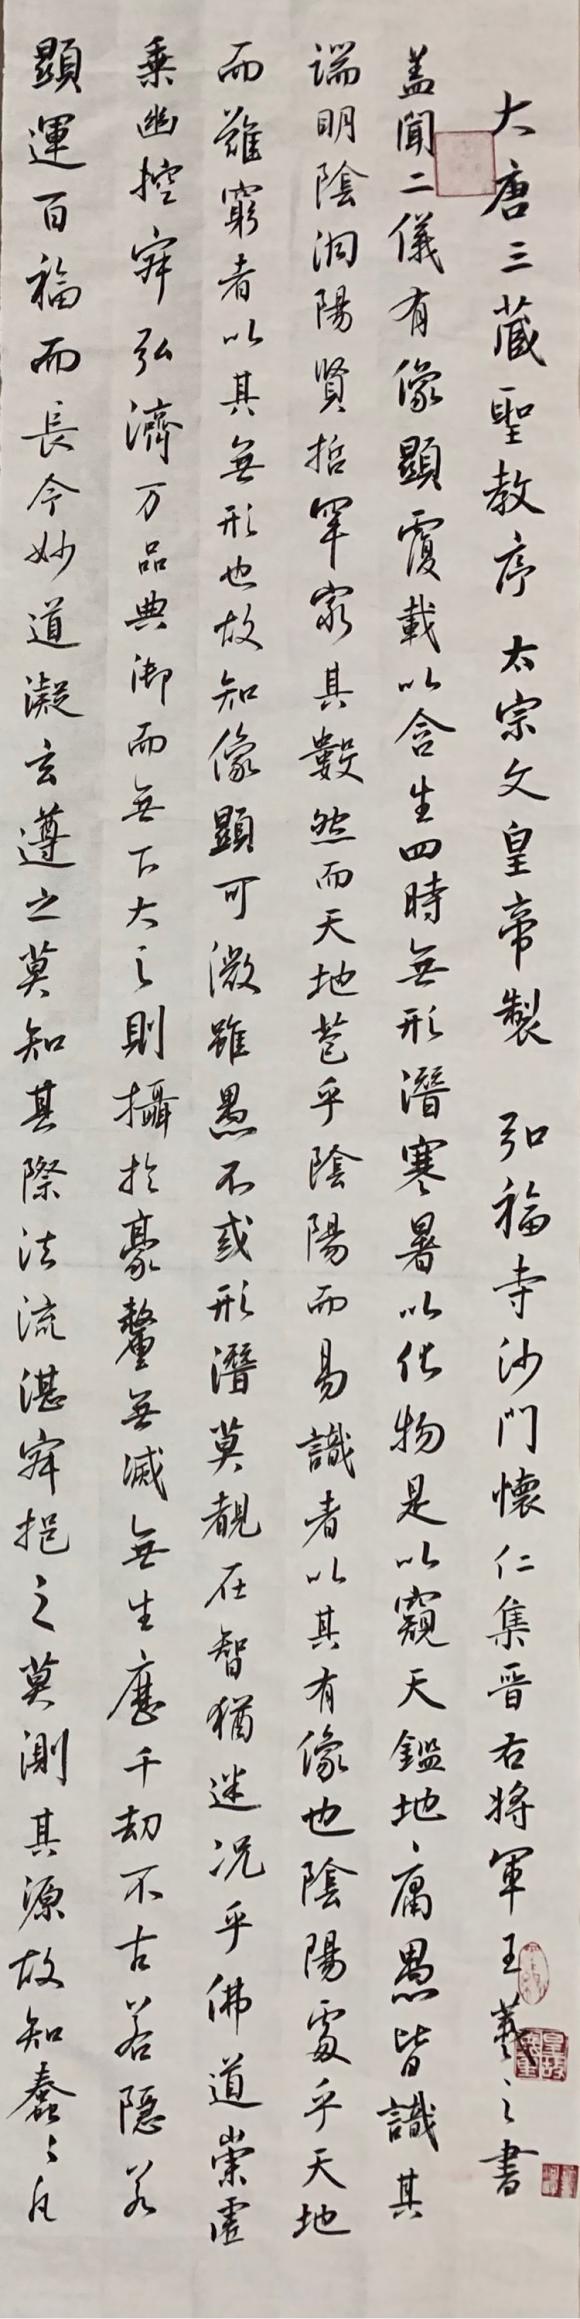 大唐三藏聖教序 太宗文皇帝製 弘福寺沙門懷仁集晉右將軍王羲之書
蓋聞二儀有像顯覆載以含生四時無形潛寒暑以化物是以窺天鑑地々庸愚皆識其
端明陰洞陽賢哲罕窮其數然而天地苞乎陰陽而易識者以其有像也陰陽處乎天地
而難窮者以其無形也故知像顯可徵雖愚不或形潛莫覩在智猶迷況乎佛道崇虛
乘幽控寂弘濟万品典御而無下大之則攝於豪釐無滅無生歷千劫不古若隱若
顯運百福而長今妙道凝玄遵之莫知其際法流湛寂挹之莫測其源故知蠢々凡